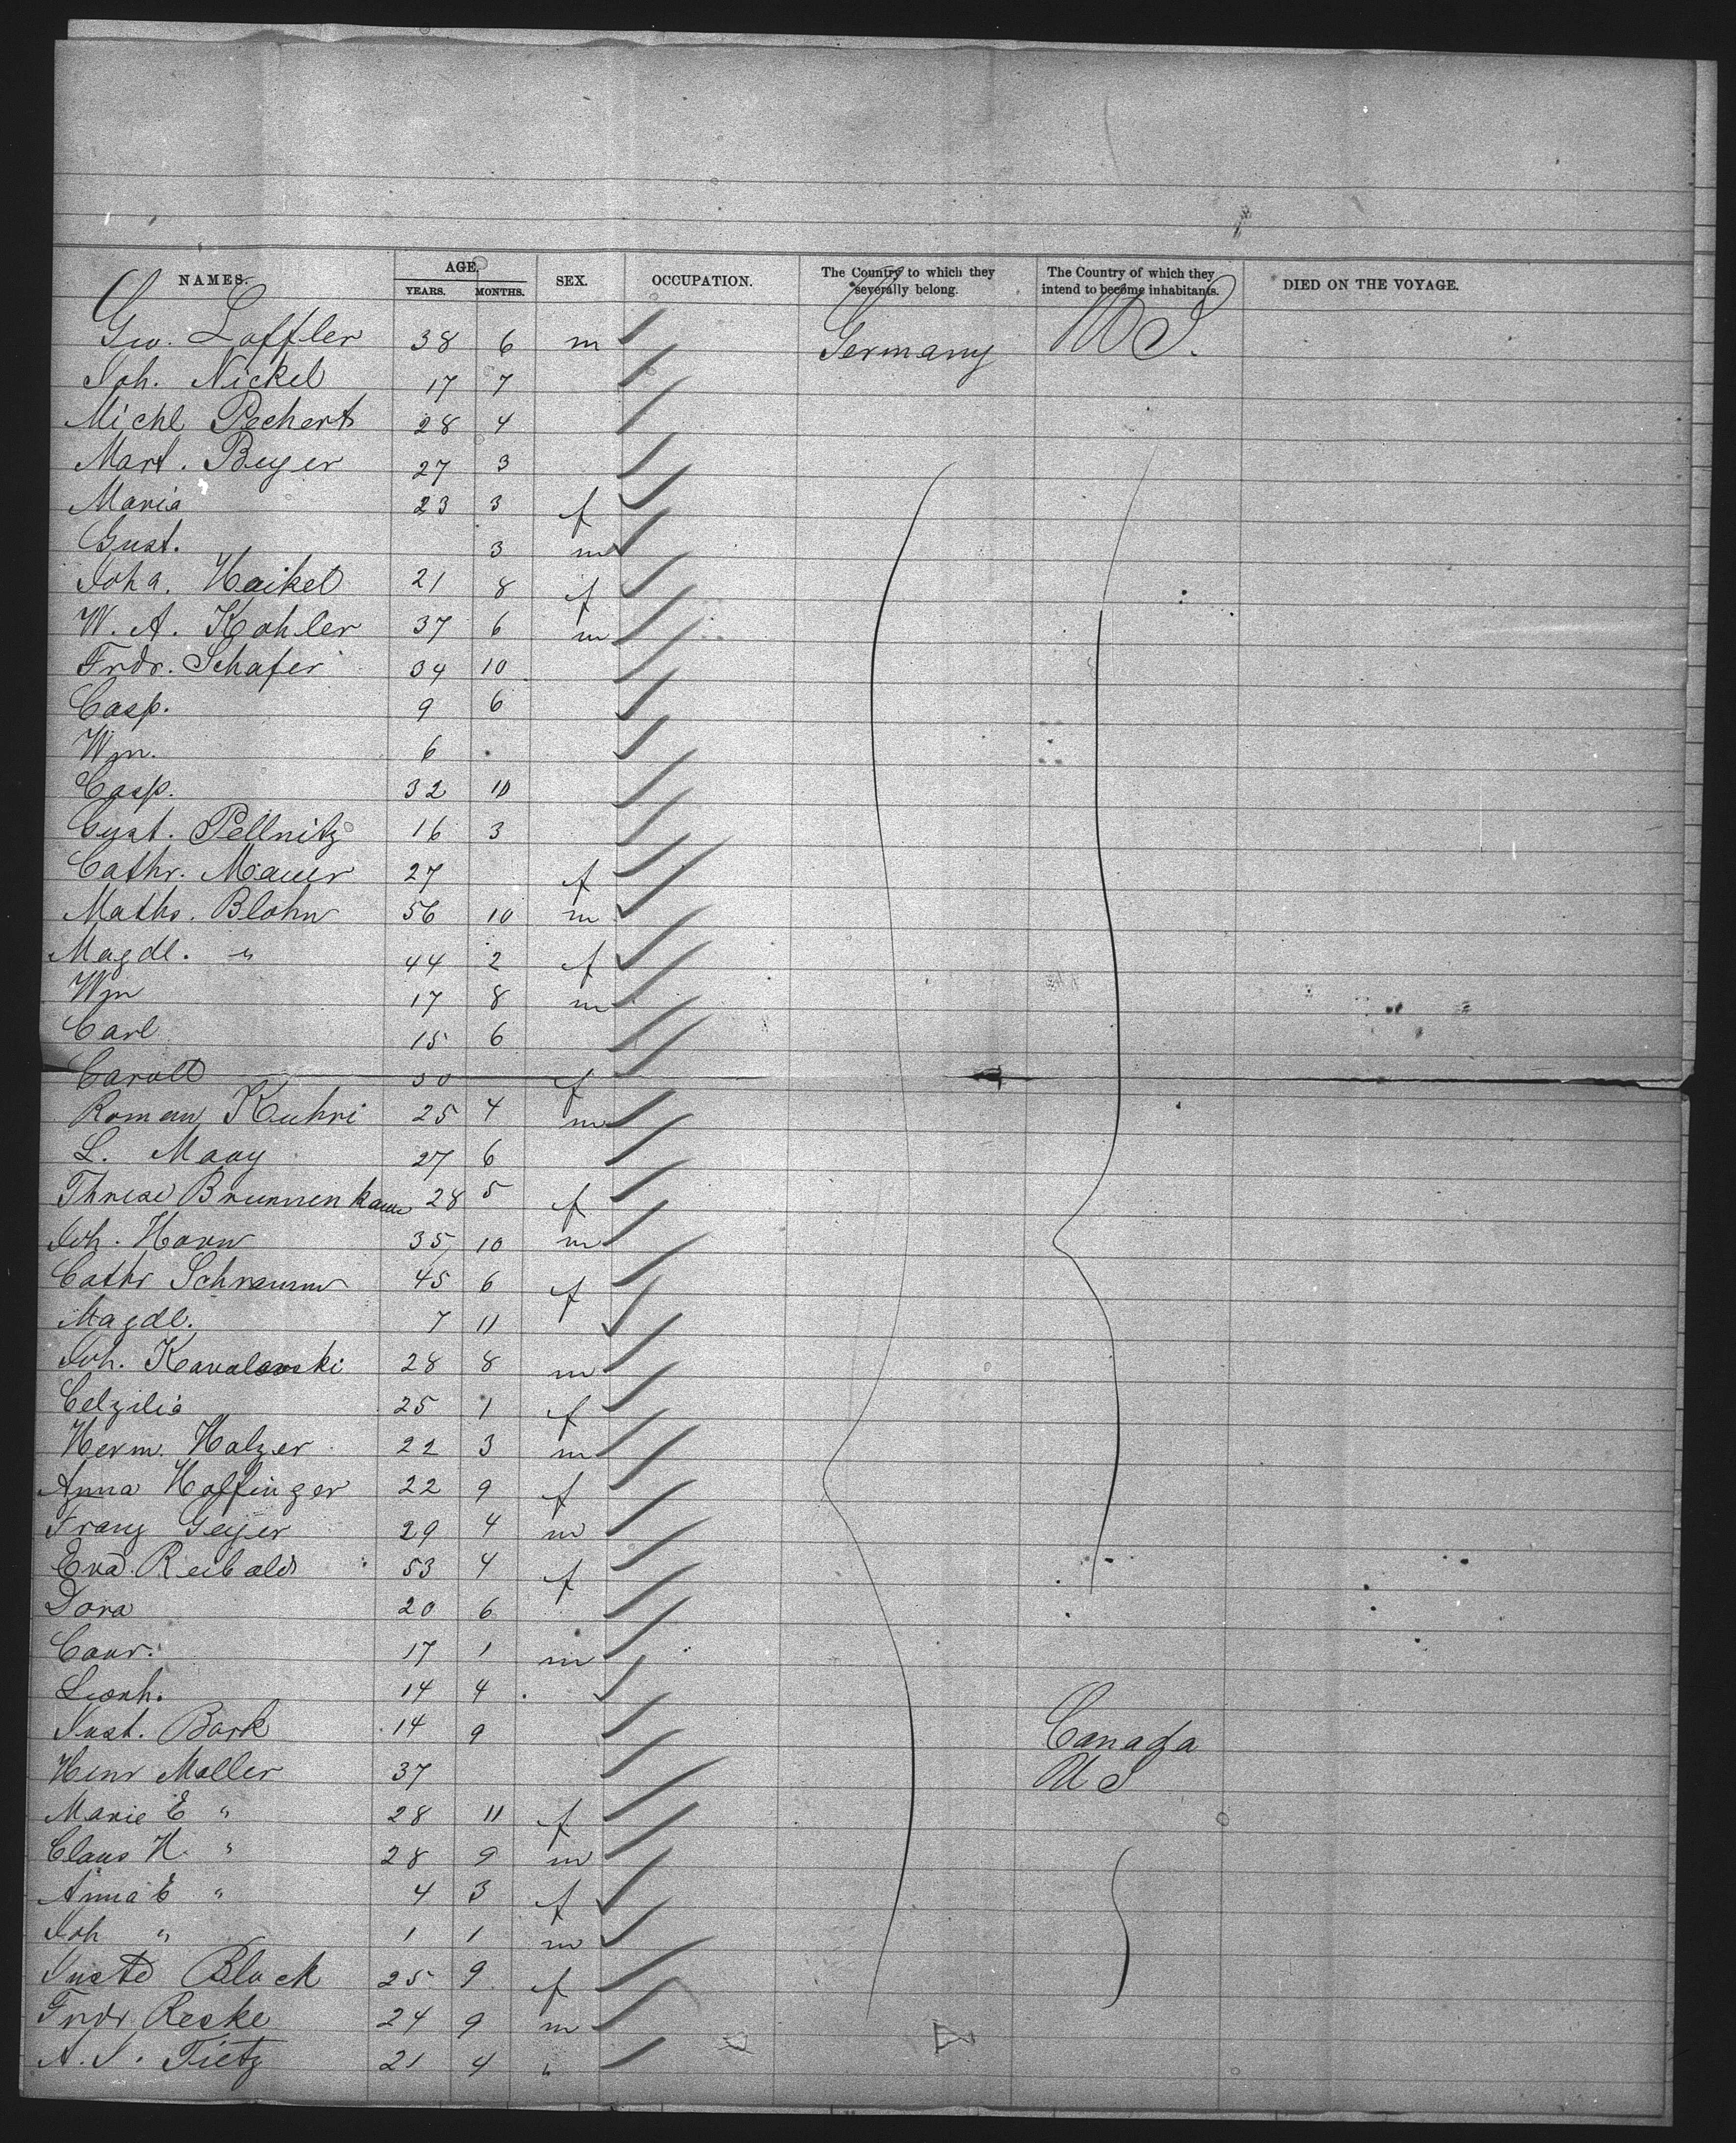 NAMES. AGE. YEARS. MONTHS. SEX. OCCUPATION. The Country to which they severally belong. The Country of which they intend to become inhabitants. DIED ON THE VOYAGE.
Loffler 38 6 m Germany US.
Joh. Nickel 17 7
Michl Pechert 28 4
Mart. Beyer 27 3
Maria 23 3 f
Gust. 3 m
Joha. Haikel 21 8 f
W. A. Kohler 37 6 m
Frdr. Schafer 34 10
Casp. 9 6
Wm. 6
Casp. 32 10
Gust. Pellnitz 16 3
Cathr. Mauer 27 f
Maths. Blohn 56 10 m
Magdl. " 44 2 f
Wm 17 8 m
Carl 15 6
30 f
Roman Kuhri 25 4 m
L. May 27 6
Threse 28 5 f
Joh. Horn 35 10 m
Cathr Schramm 45 6 f
Magdl. 7 11
Joh. Kavalowski 28 8 m
Celzilia 25 1 f
Herm. Holzer 22 3 m
Anna Holfinger 22 9 f
Franz Geyer 29 4 m
Eva Reibold 53 4 f
Dora 20 6
Conr. 17 1 m
Leonh. 14 4
Just. Bark 14 9 Canada
Henr Moller 37 US
Marie E " 28 11 f
Claus H. " 28 9 m
Anna E " 4 3 f
Joh " 1 1 m
Block 25 9 f
Frdr Reske 24 9 m
A. J. Tietz 21 4 "